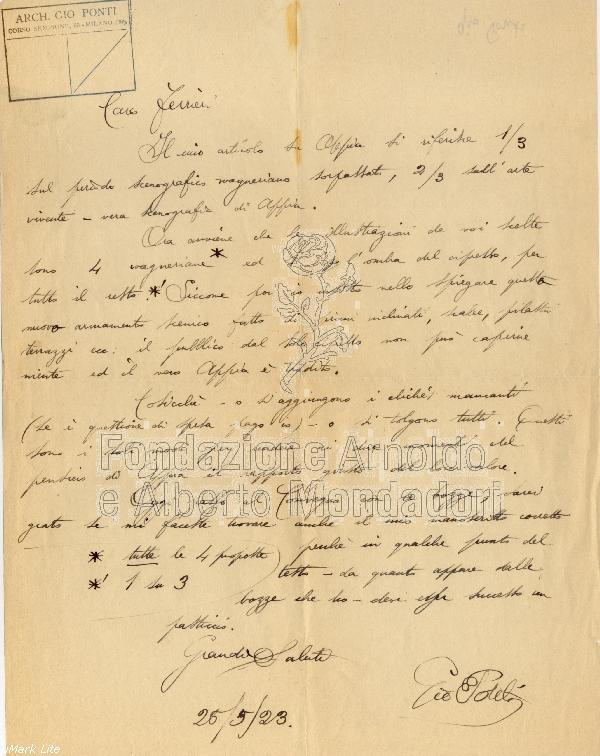 ARCH. GIO PONTI
CORSO SEMPIONE, - MILANO
Caro Ferrieri
Il mio articolo su Appia si riferisce 1/3
sul periodo scenografico wagneriano sorpassato, 2/3 sull'arte
vivente - vera scenografia di Appia.
Ora avviene che le illustrazioni da voi scelte
sono 4 wagneriane * ed l'ombra del cipresso, per
tutto il resto! *' Siccome poi io nello spiegare questo
nuovo armamento scenico fatto di piani inclinati, scale, pilastri
terrazzi ecc. il pubblico dal solo cipresso non può capirne
niente ed il vero Appia è tradito.
Cosicchè - o s'aggiungono i clichés mancanti
(se è questione di spesa pago io) - o si tolgono tutti. Questi
sono i soli modi per rendere ai due momenti del
pensiero di Appia il giusto del loro valore.
Oggi al Convegno con le bozze, sarei
grato se mi faceste trovare anche il mio manoscritto corretto
* tutte le 4 proposte
*' 1 su 3
perchè in qualche punto del
testo - da quanto appare dalle
bozze che ho - deve esser successo un
pasticcio.
Grandi Saluti
26/5/23.
Fondazione Arnoldo
e Alberto Mondadori
Mark Lite